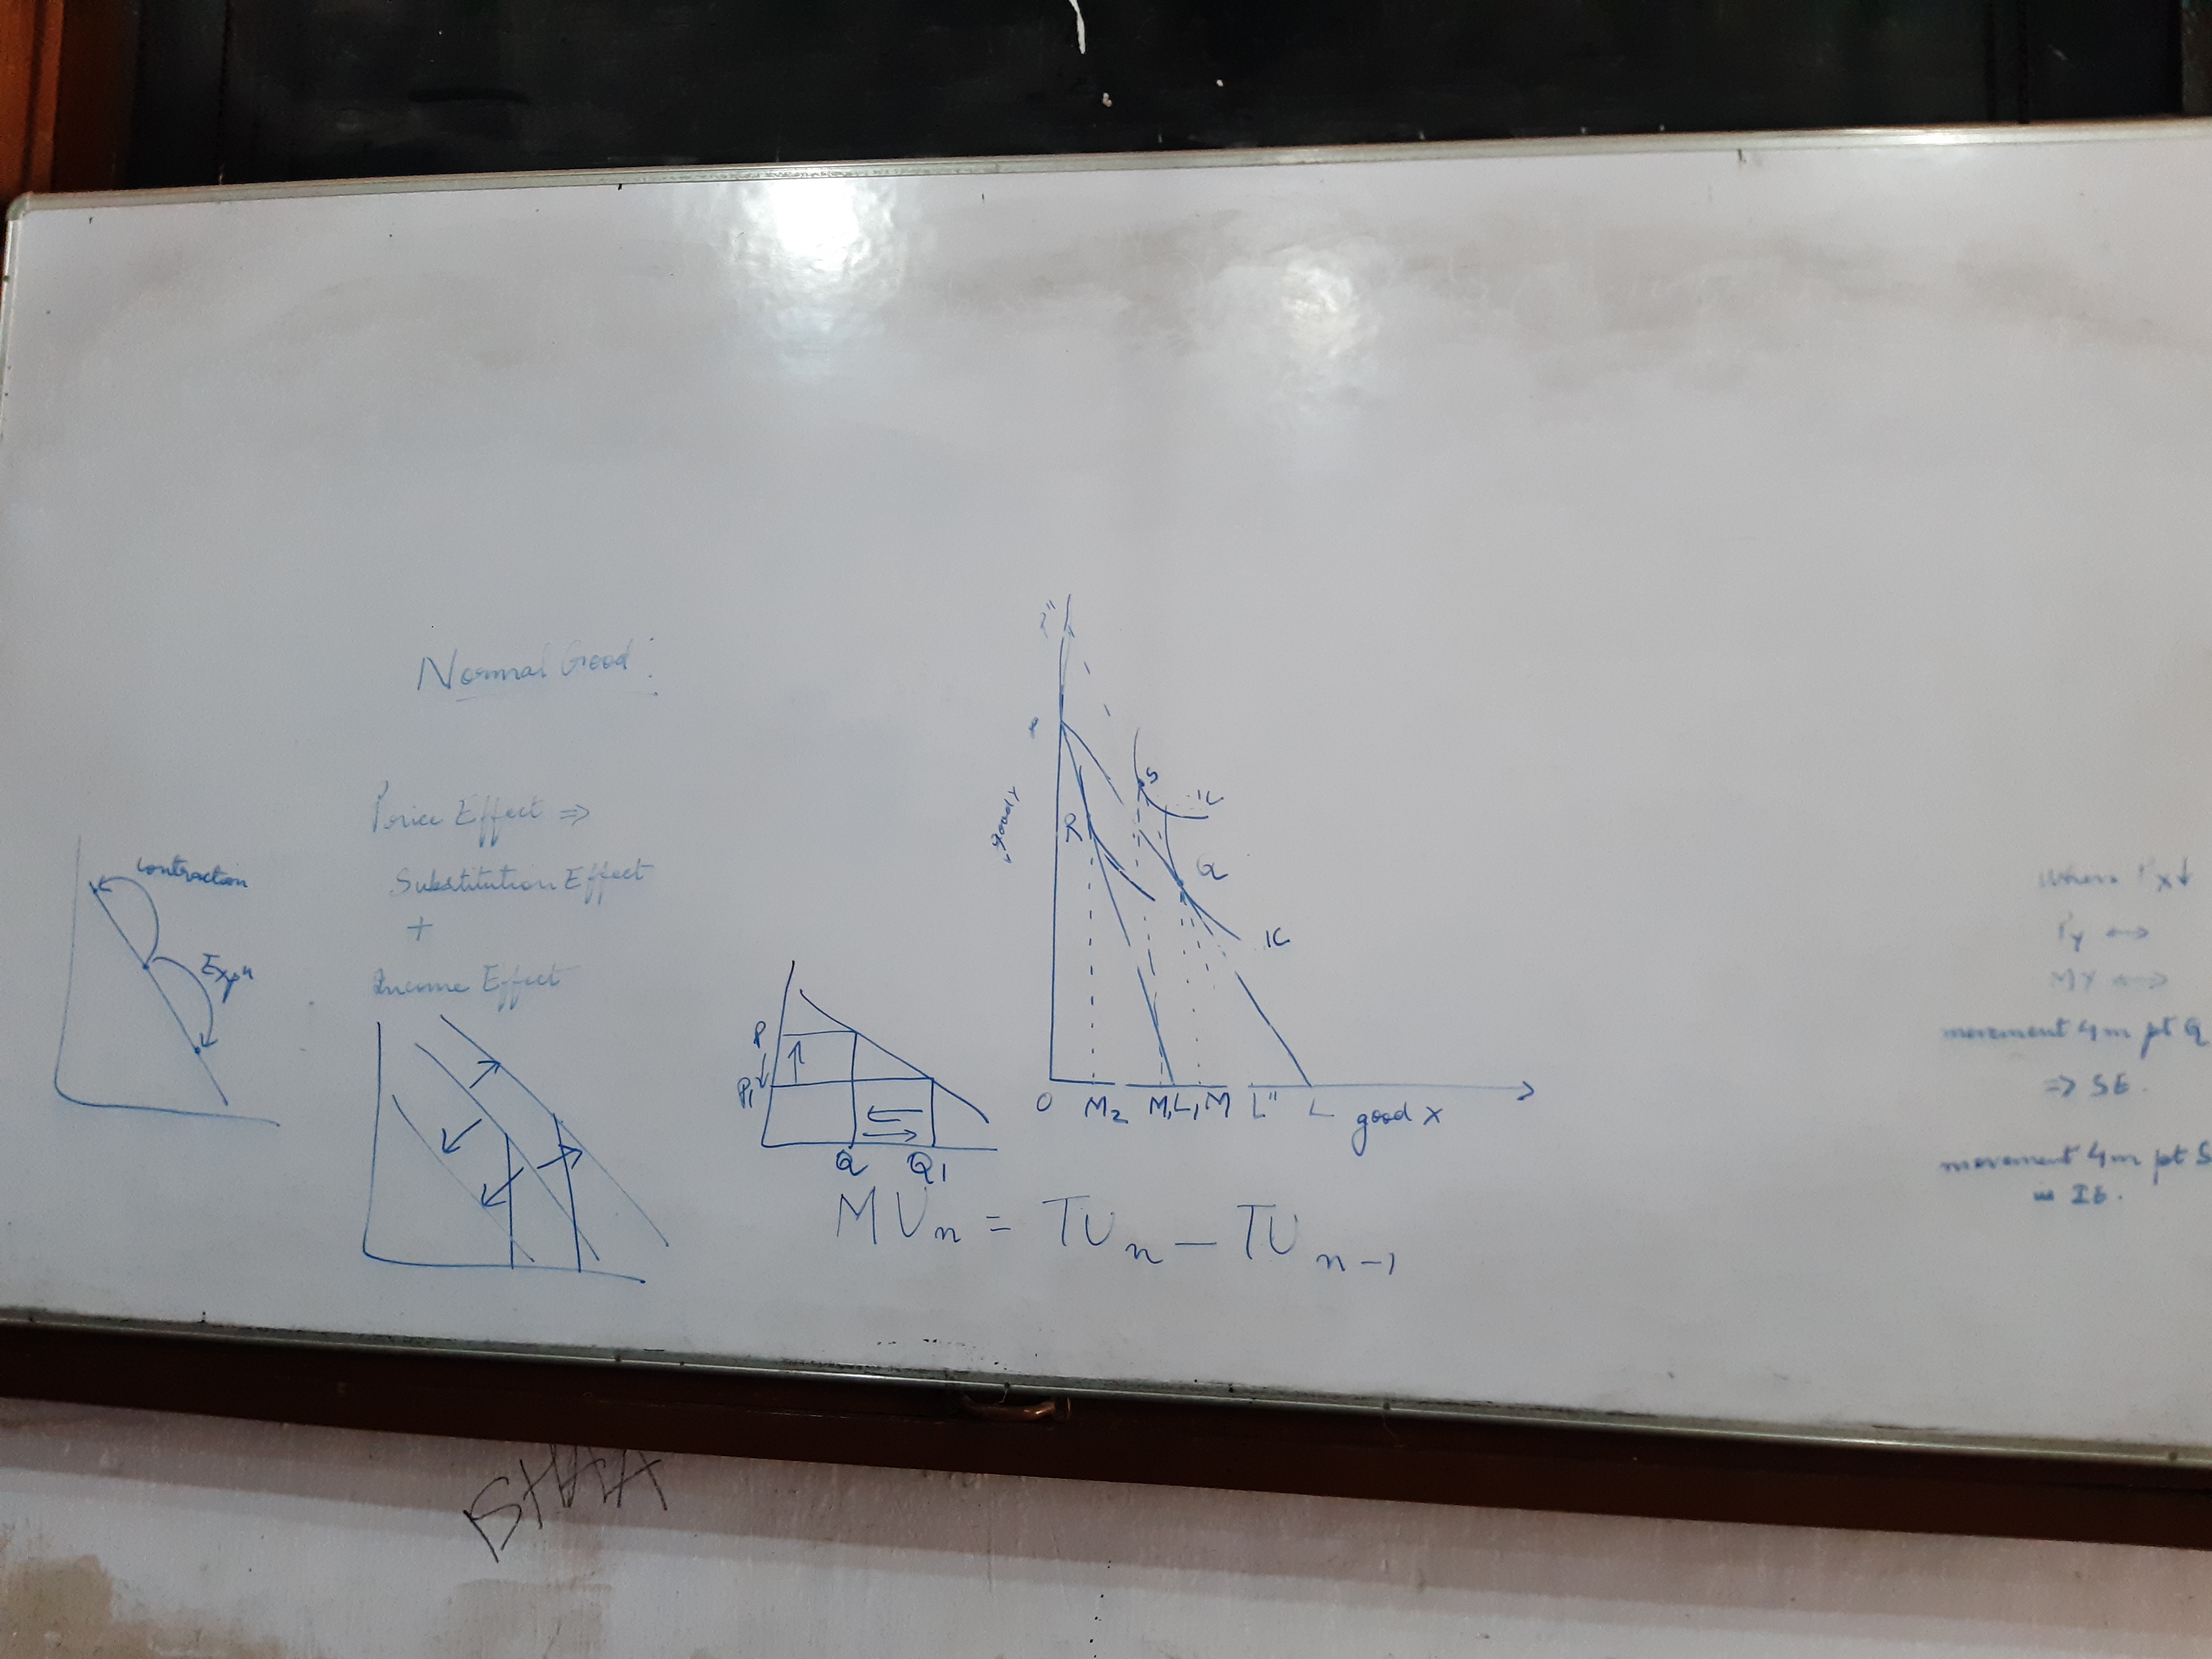 Normal Good :
Price Effect ⇒
Substitution Effect
+
Income Effect
contraction
Expⁿ
P
P1
Q
Q1
MUn = TUn − TUn−1
R
S
Q
IC
IC
O
M2
M1
L1
M
L"
L
good x
good y
when Px↓
Py ↔
MY ↔
movement 4m pt Q
⇒ SE.
movement 4m pt S
IE.
BHAIA